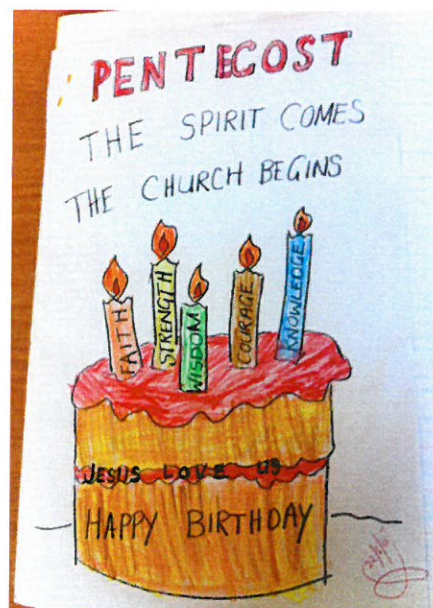 PENTECOST
THE SPIRIT COMES
THE CHURCH BEGINS
FAITH
STRENGTH
WISDOM
COURAGE
KNOWLEDGE
JESUS LOVE US
HAPPY BIRTHDAY